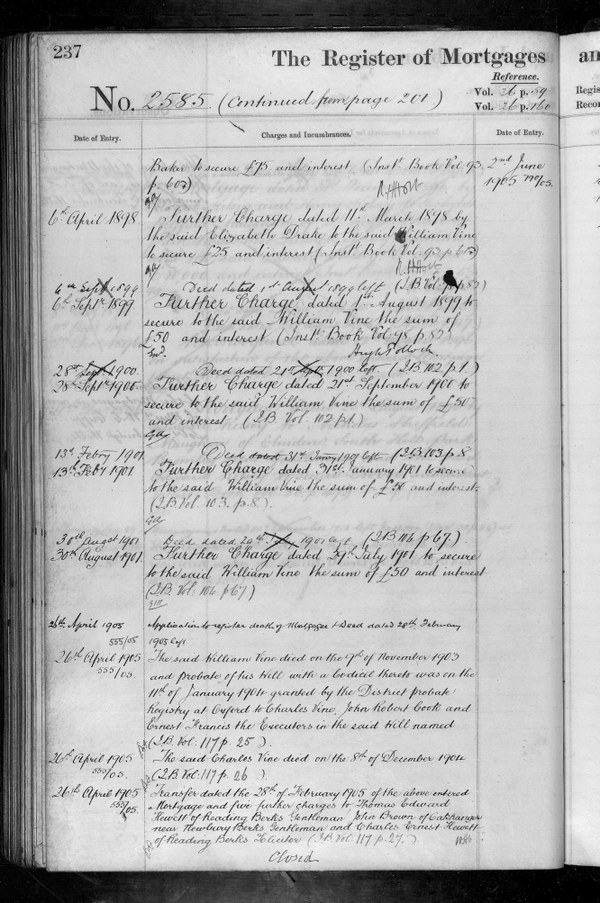 237
The Register of Mortgages
an
Reference.
Vol. 26 p. 59
Vol. 26 p. 160
Regis
Recor
No. 2585. (Continued from page 201)
Date of Entry.
Charges and Incumbrances.
Date of Entry.
Baker to secure £75 and interest. (Instt Book Vol. 93
p. 602)
2nd June
1905
6th April 1898
Further Charge dated 11th March 1898 by
the said Elizabeth Drake to the said William Vine
to secure £25 and interest (Instt Book Vol. 93 p. 602)
6th Sept 1899
Deed dated 1st August 1899 left (IB Vol. 98 p. 82)
6th Septr 1899
Further Charge dated 1st August 1899 to
secure to the said William Vine the sum of
£50 and interest (Instt Book Vol 98 p. 82)
Hugh Pollock
28th Sept 1900.
Deed dated 21st Sept 1900 left. (IB 102 p. 1.)
28th Septr 1900
Further Charge dated 21st September 1900 to
secure to the said William Vine the sum of £50
and interest (IB Vol 102 p. 1.)
13th Febry 1901
Deed dated 31st Janry 1901 left IB 103 p. 8
13th Feby 1901
Further Charge dated 31st January 1901 to secure
to the said William Vine the sum of £50 and interest
(IB Vol. 103. p. 8.)
30th August 1901
Deed dated 29th July 1901 left (IB 106 p 67.)
30th August 1901
Further Charge dated 29th July 1901 to secure
to the said William Vine the sum of £50 and interest
(IB Vol. 106 p 67)
26th April 1905
555/05
Application to register death of Mortgagee & Deed dated 28th February
1905 left
26th April 1905
555/05.
The said William Vine died on the 9th of November 1903
and probate of his Will with a Codicil thereto was on the
11th of January 1904 granted by the District probate
Registry at Oxford to Charles Vine, John Robert Cook and
Ernest Francis the Executors in the said Will named
(IB Vol: 117 p. 25)
26th April 1905
555/05.
The said Charles Vine died on the 8th of December 1904
(IB Vol: 117 p. 26)
26th April 1905
555/05.
Transfer dated the 28th of February 1905 of the above entered
Mortgage and five further charges to Thomas Edward
Hewett of Reading Berks Gentleman John Brown of
near Newbury Berks Gentleman and Charles Ernest Hewett
of Reading Berks Solicitor (IB Vol. 117 p. 27.)
Closed